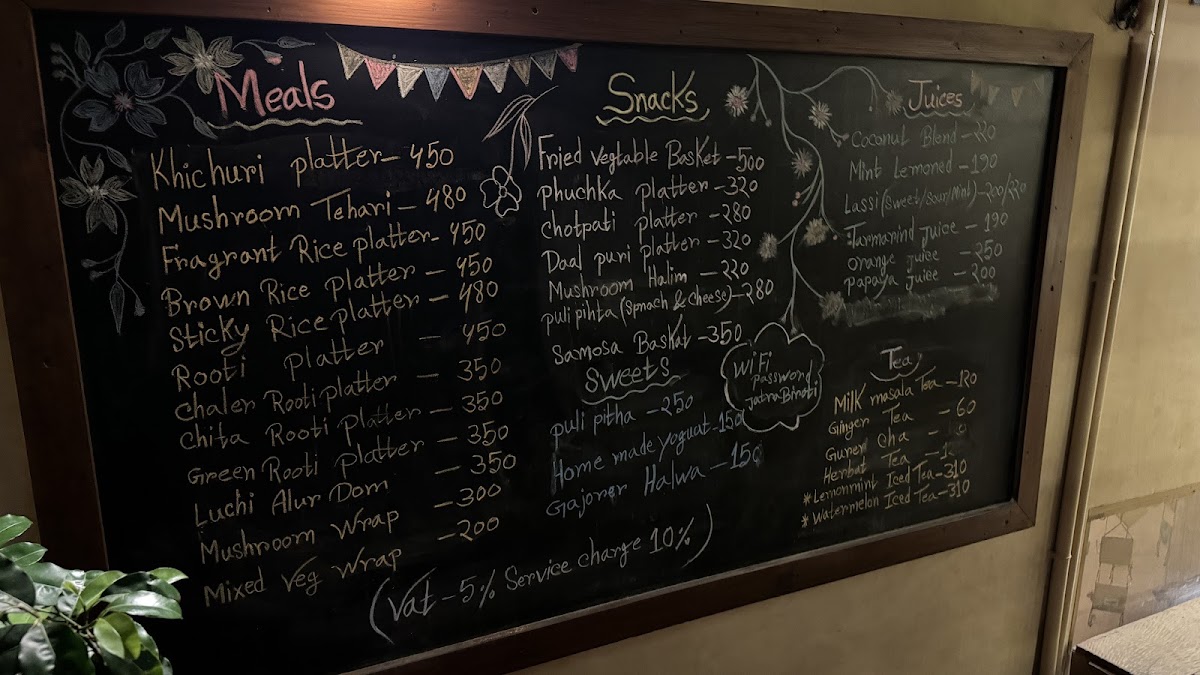 Meals
Khichuri platter - 450
Mushroom Tehari - 480
Fragrant Rice platter - 450
Brown Rice Platter - 450
Sticky Rice platter - 480
Rooti platter - 450
Chaler Rooti platter - 350
Chita Rooti platter - 350
Green Rooti platter - 350
Luchi Alur Dom - 350
Mushroom Wrap - 300
Mixed Veg Wrap - 200
Snacks
Fried vegtable Basket - 500
phuchka platter - 320
chotpati platter - 280
Daal puri platter - 320
Mushroom Halim - 220
puli pihta (Spinach & Cheese) - 280
Samosa Basket - 350
Sweets
puli pitha - 250
Home made yoguat - 150
Gajorer Halwa - 150
(Vat - 5% Service charge 10%)
WiFi
Password
JatnaBiroti
Juices
Coconut Blend - 220
Mint Lemoned - 190
Lassi (Sweet/Sour/Mint) - 200/220
Tarmarind juice - 190
Orange juice - 250
Papaya Juice - 200
Tea
Milk masala Tea - 120
Ginger Tea - 60
Cha -
Tea -
* Lemonmint Iced Tea - 310
* Watermelon Iced Tea - 310